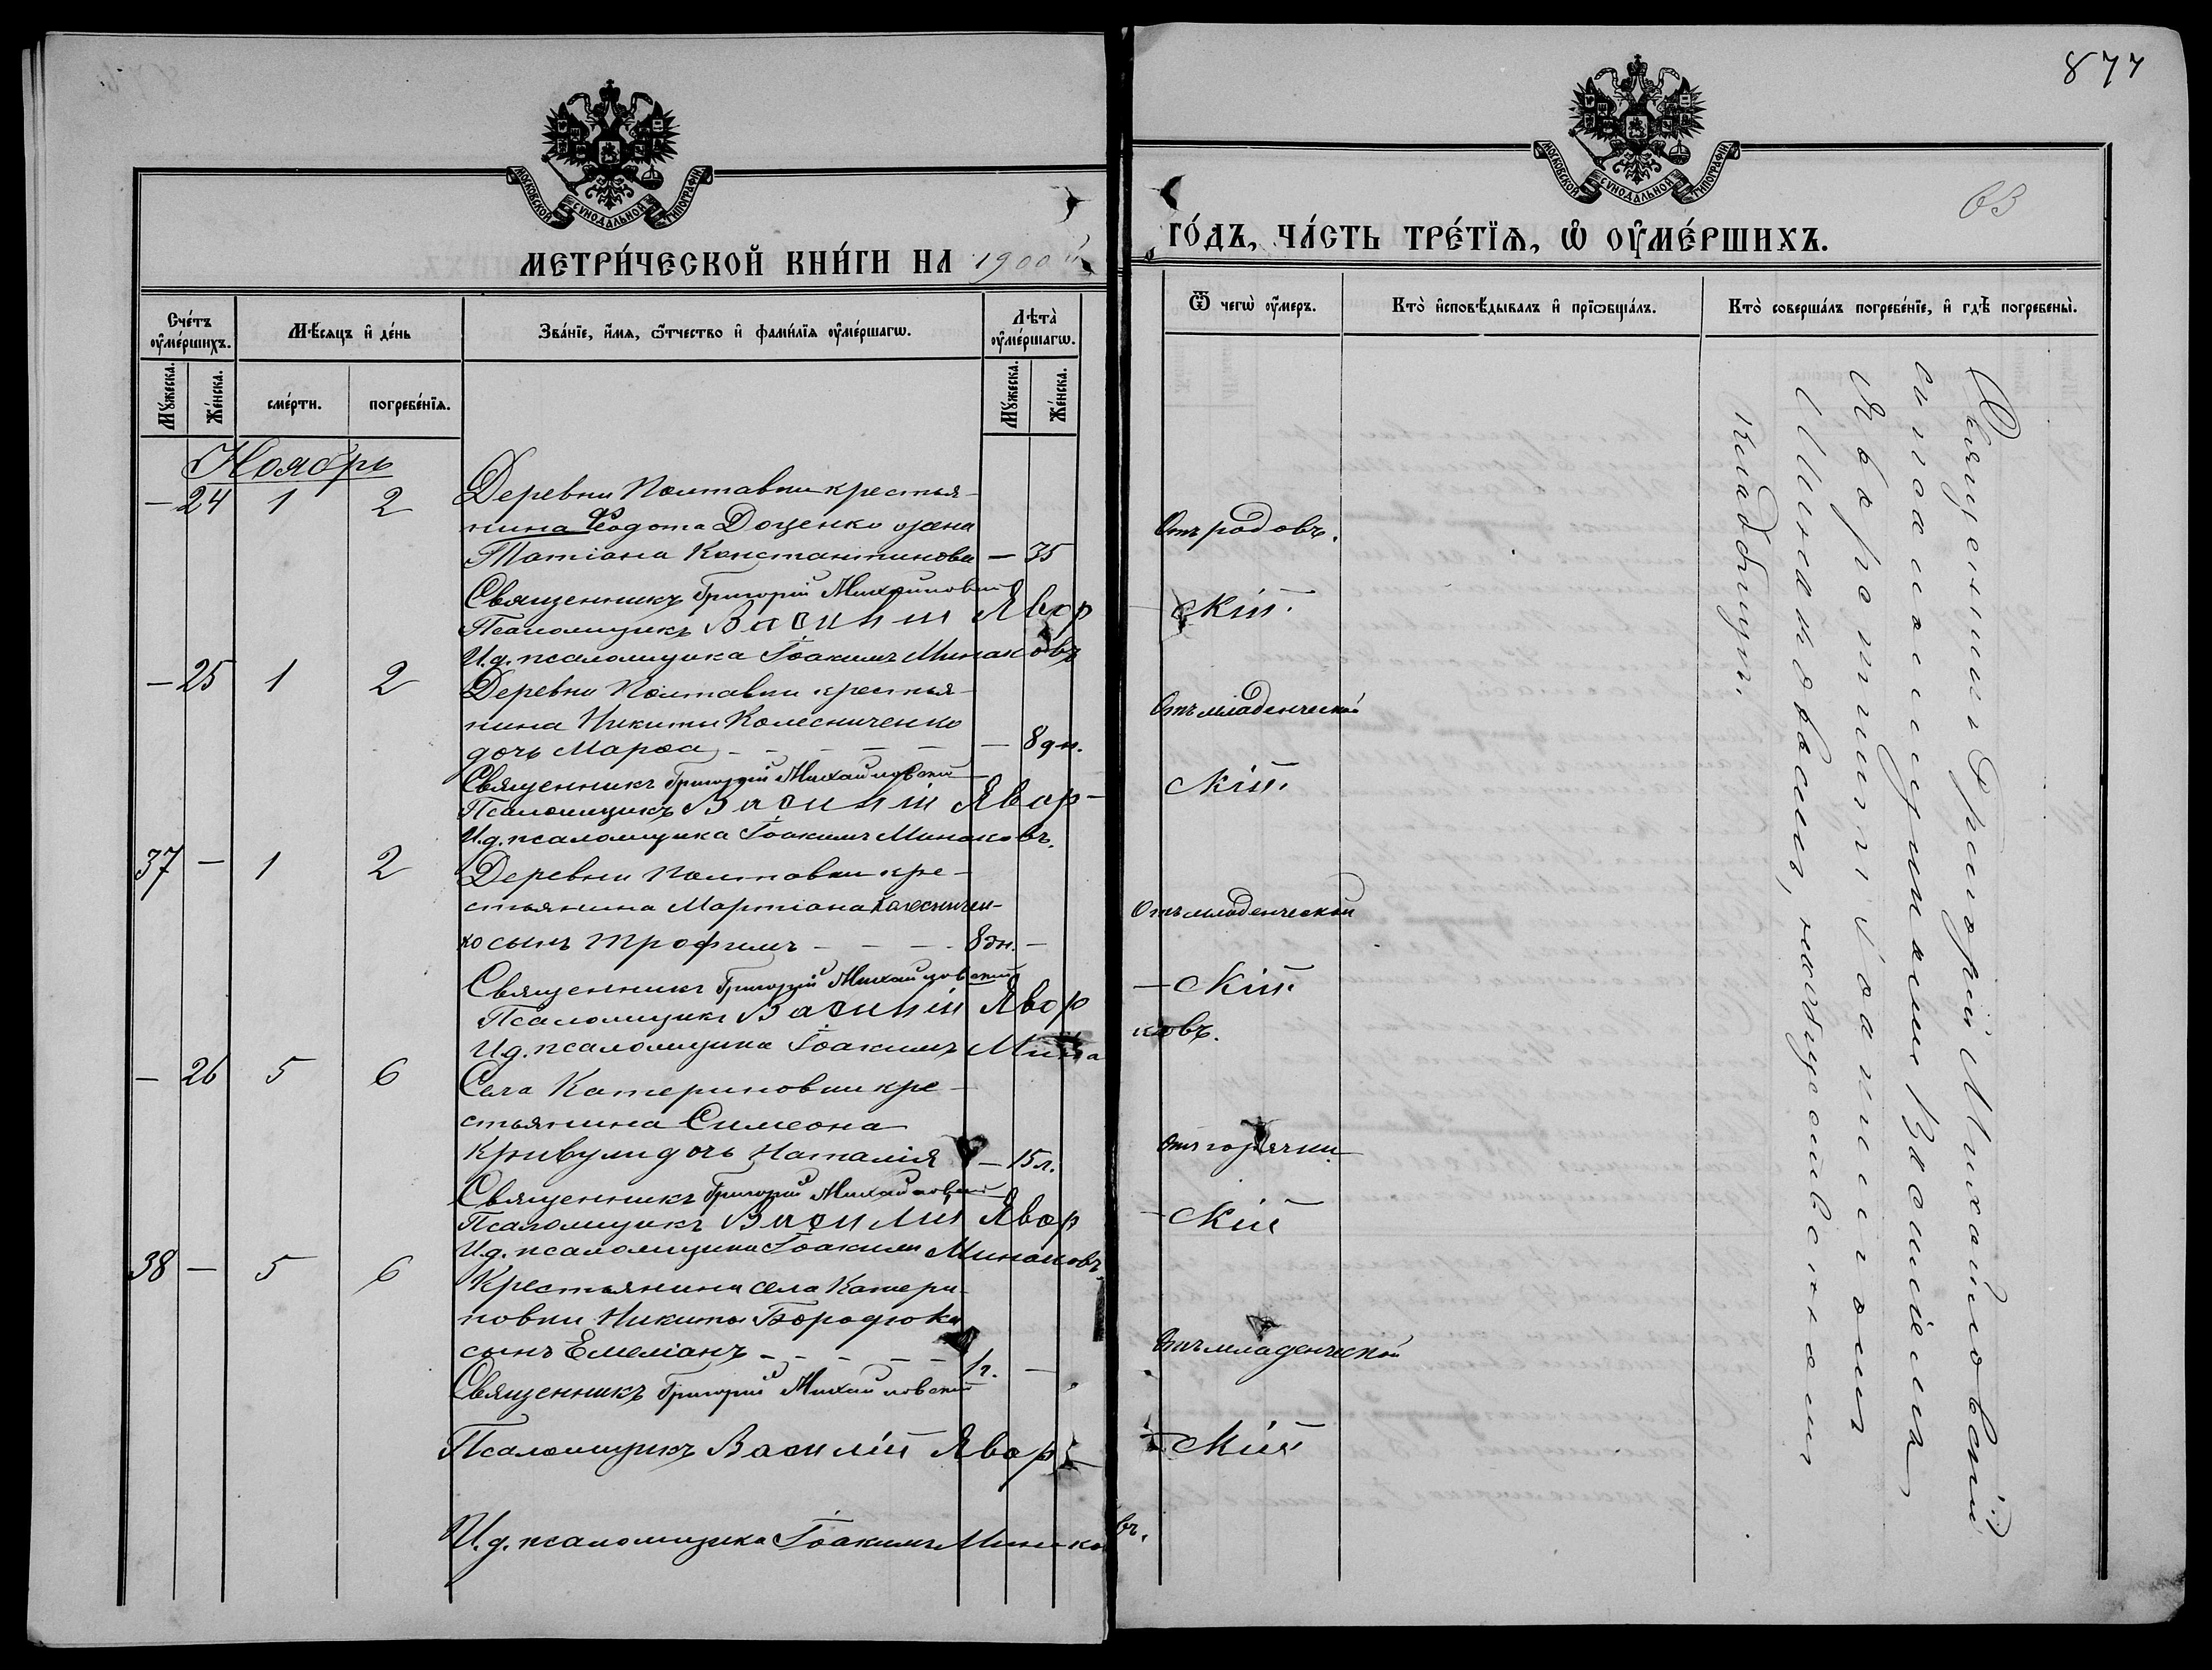 877
63
МОСКОВСКОЙ СѴНОДАЛЬНОЙ ТИПОГРАФІИ
МОСКОВСКОЙ СѴНОДАЛЬНОЙ ТИПОГРАФІИ
МЕТРИ́ЧЕСКОЙ КНИ́ГИ НА 1900й
ГО́ДЪ, ЧА́СТЬ ТРЕ́ТЇѦ, Ѡ҆ ОУ҆МЕ́РШИХЪ.
Сче́тъ оу҆ме́ршихъ.
Мѣ́сяцъ и҆ де́нь
Зва́нїе, и҆́мѧ, ѻ҆́тчество и҆ фами́лїѧ оу҆ме́ршагѡ.
Лѣта̀ оу҆ме́ршагѡ.
Ѿ чегѡ̀ оу҆́меръ.
Кто̀ и҆сповѣ́дывалъ и҆ прїѡбща́лъ.
Кто̀ соверша́лъ погребе́нїе, и҆ гдѣ̀ погребены̀.
Мꙋ́жеска.
Же́нска.
сме́рти.
погребе́нїѧ.
Мꙋ́жеска.
Же́нска.
Ноябрь
— 24 1 2 Деревни Полтавки крестья-
нина Ѳеодота Доценко жена
Татіана Константинова — 35 Отъ родовъ.
Священникъ Григорій Михайловскій
Псаломщикъ Василій Явор-скій.
И.д. псаломщика Іоакимъ Минаковъ
— 25 1 2 Деревни Полтавки крестья-
нина Никиты Колесниченко
дочь Марѳа — 8 дн. Отъ младенческой
Священникъ Григорій Михайловскій
Псаломщикъ Василій Явор-скій.
И.д. псаломщика Іоакимъ Минаковъ.
37 — 1 2 Деревни Полтавки кре-
стьянина Мартіана Колесничен-
ко сынъ Трофимъ 8 дн. — Отъ младенческой
Священникъ Григорій Михайловскій
Псаломщикъ Василій Явор-скій.
И.д. псаломщика Іоакимъ Минаковъ.
— 26 5 6 Села Катериновки кре-
стьянина Симеона
Кривули дочь Наталія — 15 л. Отъ горячки
Священникъ Григорій Михайловскій
Псаломщикъ Василій Явор-скій
И.д. псаломщика Іоакимъ Минаковъ.
38 — 5 6 Крестьянина села Катери-
новки Никиты Бородюка
сынъ Емеліанъ 1 г. — Отъ младенческой
Священникъ Григорій Михайловскій
Псаломщикъ Василій Явор-скій
И.д. псаломщика Іоакимъ Минаковъ.
Священникъ Григорій Михайловскій
съ псаломщикомъ Василіемъ
Яворскимъ и Іоакимомъ
Минаковымъ, на общественномъ
кладбищѣ.